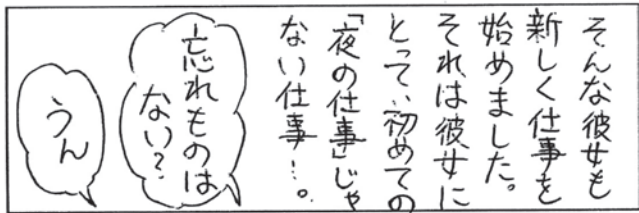 そんな彼女も
新しく仕事を
始めました。
それは彼女に
とって、初めての
「夜の仕事」じゃ
ない仕事…。
忘れものは
ない?
うん